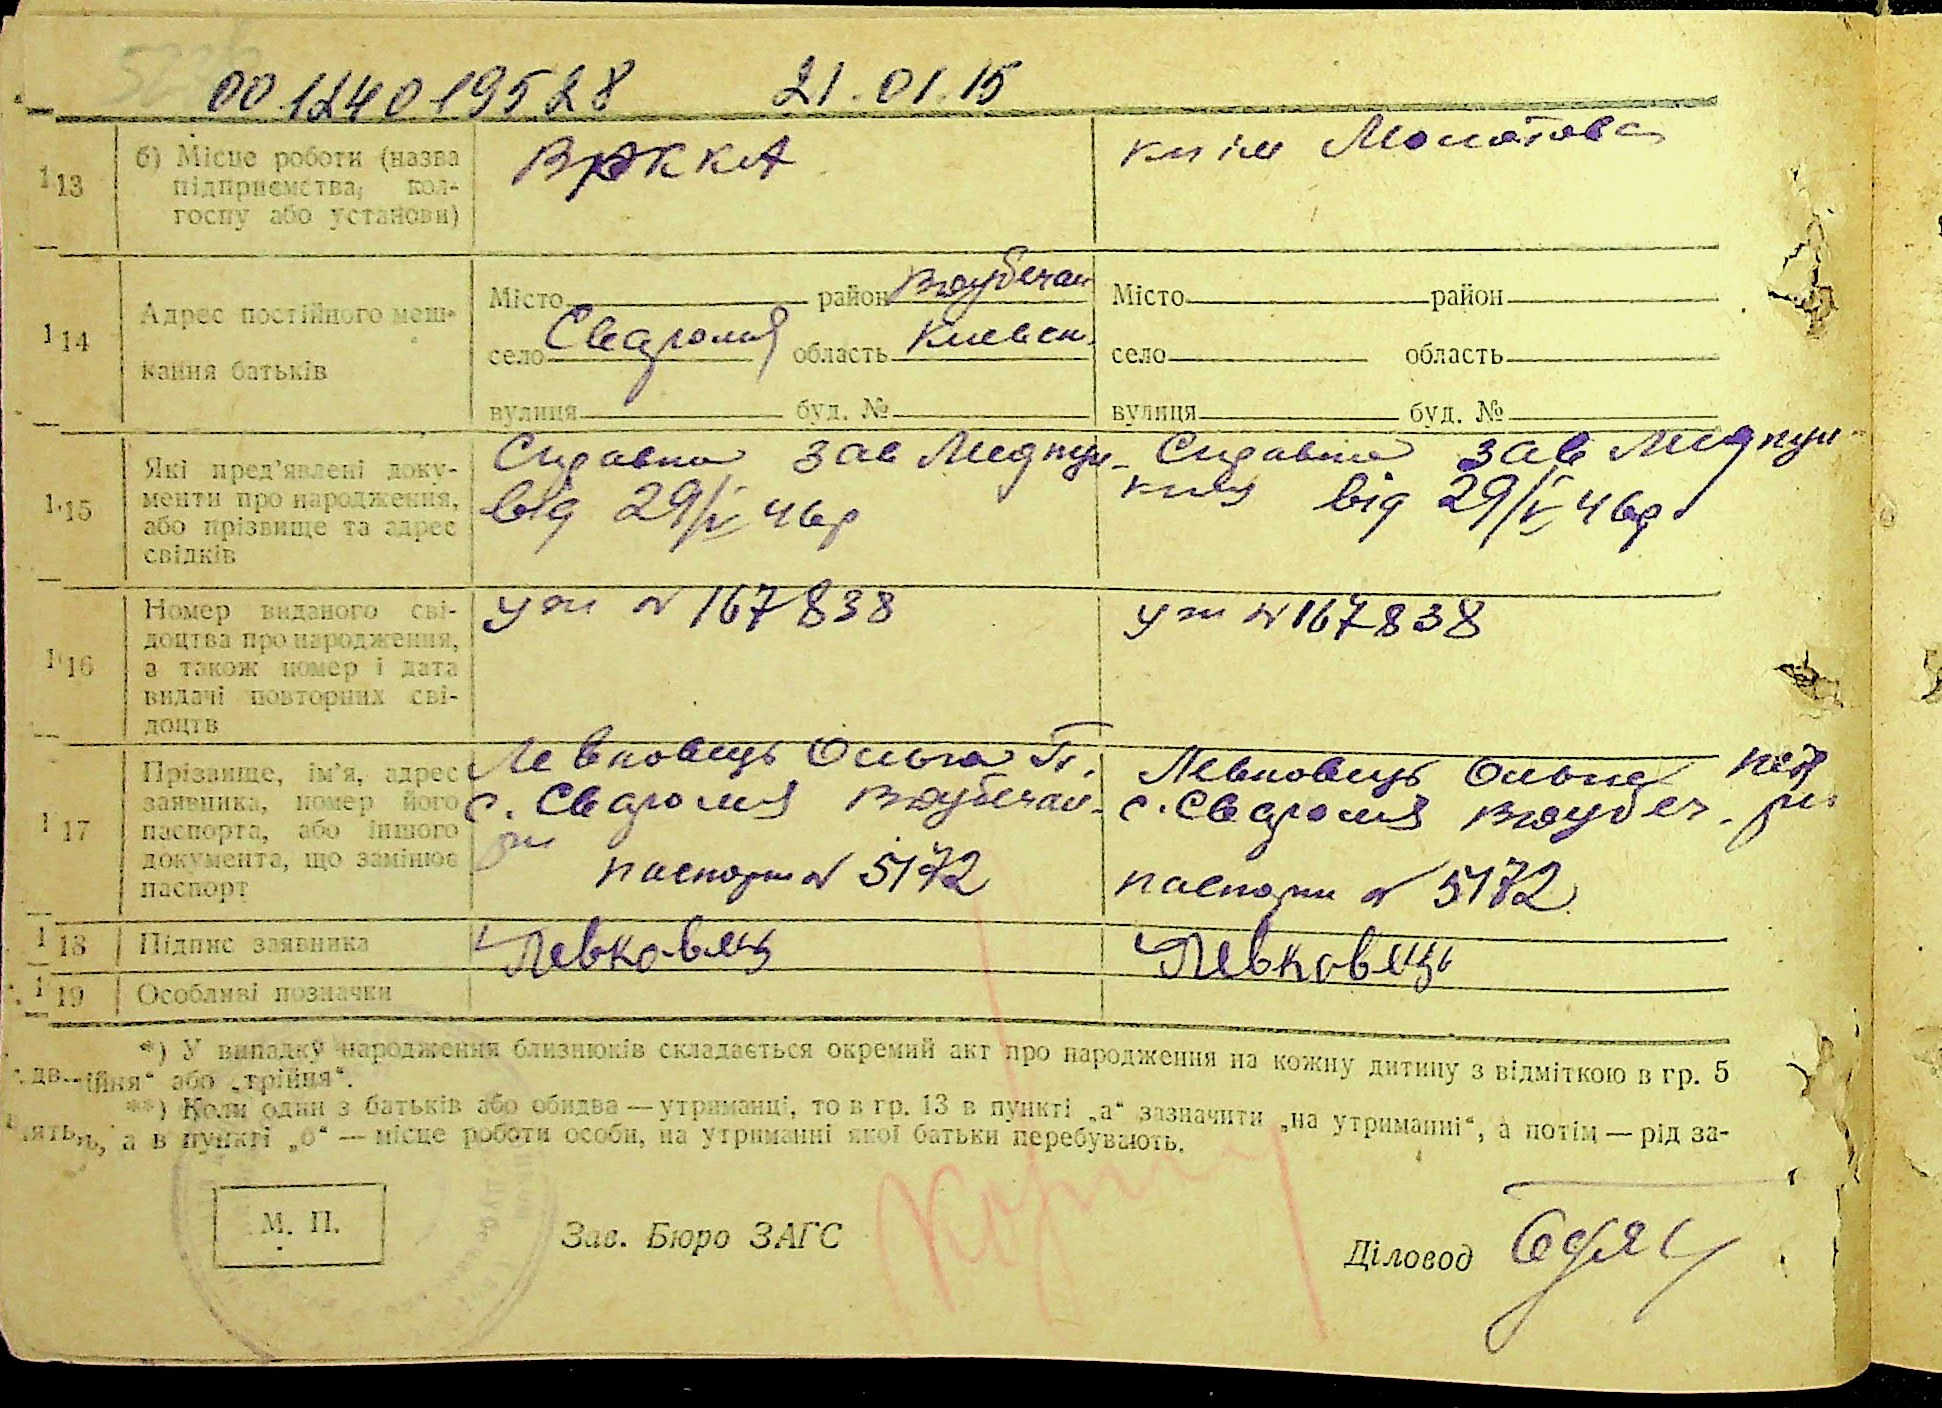 00124019528 21.01.15
13 б) Місце роботи (назва підприємства, кол-госпу або установи) ВРККА кп ім Молотова
14 Адрес постійного меш-кання батьків
Місто район Місто район
село область Киевск. село область
вулиця буд. № вулиця буд. №
15 Які пред'явлені доку-менти про народження, або прізвище та адрес свідків
Справка зав Медпун- Справка зав Медпун-
від 29/V 41р кта від 29/V 41р
16 Номер виданого сві-доцтва про народження, а також номер і дата видачі повторних сві-доцтв
№ 167838 № 167838
17 Прізвище, ім'я, адрес заявника, номер його паспорта, або іншого документа, що замінює паспорт
Левковець Ольга П. Левковець Ольга
с. с.
паспорт № 5172 паспорт № 5172
18 Підпис заявника Левковец Левковець
19 Особливі позначки
*) У випадку народження близнюків складається окремий акт про народження на кожну дитину з відміткою в гр. 5
„двійня“ або „трійня“.
**) Коли один з батьків або обидва — утриманці, то в гр. 13 в пункті „а“ зазначити „на утриманні“, а потім — рід за-
нять, а в пункті „б“ — місце роботи особи, на утриманні якої батьки перебувають.
М. П. Зав. Бюро ЗАГС Діловод